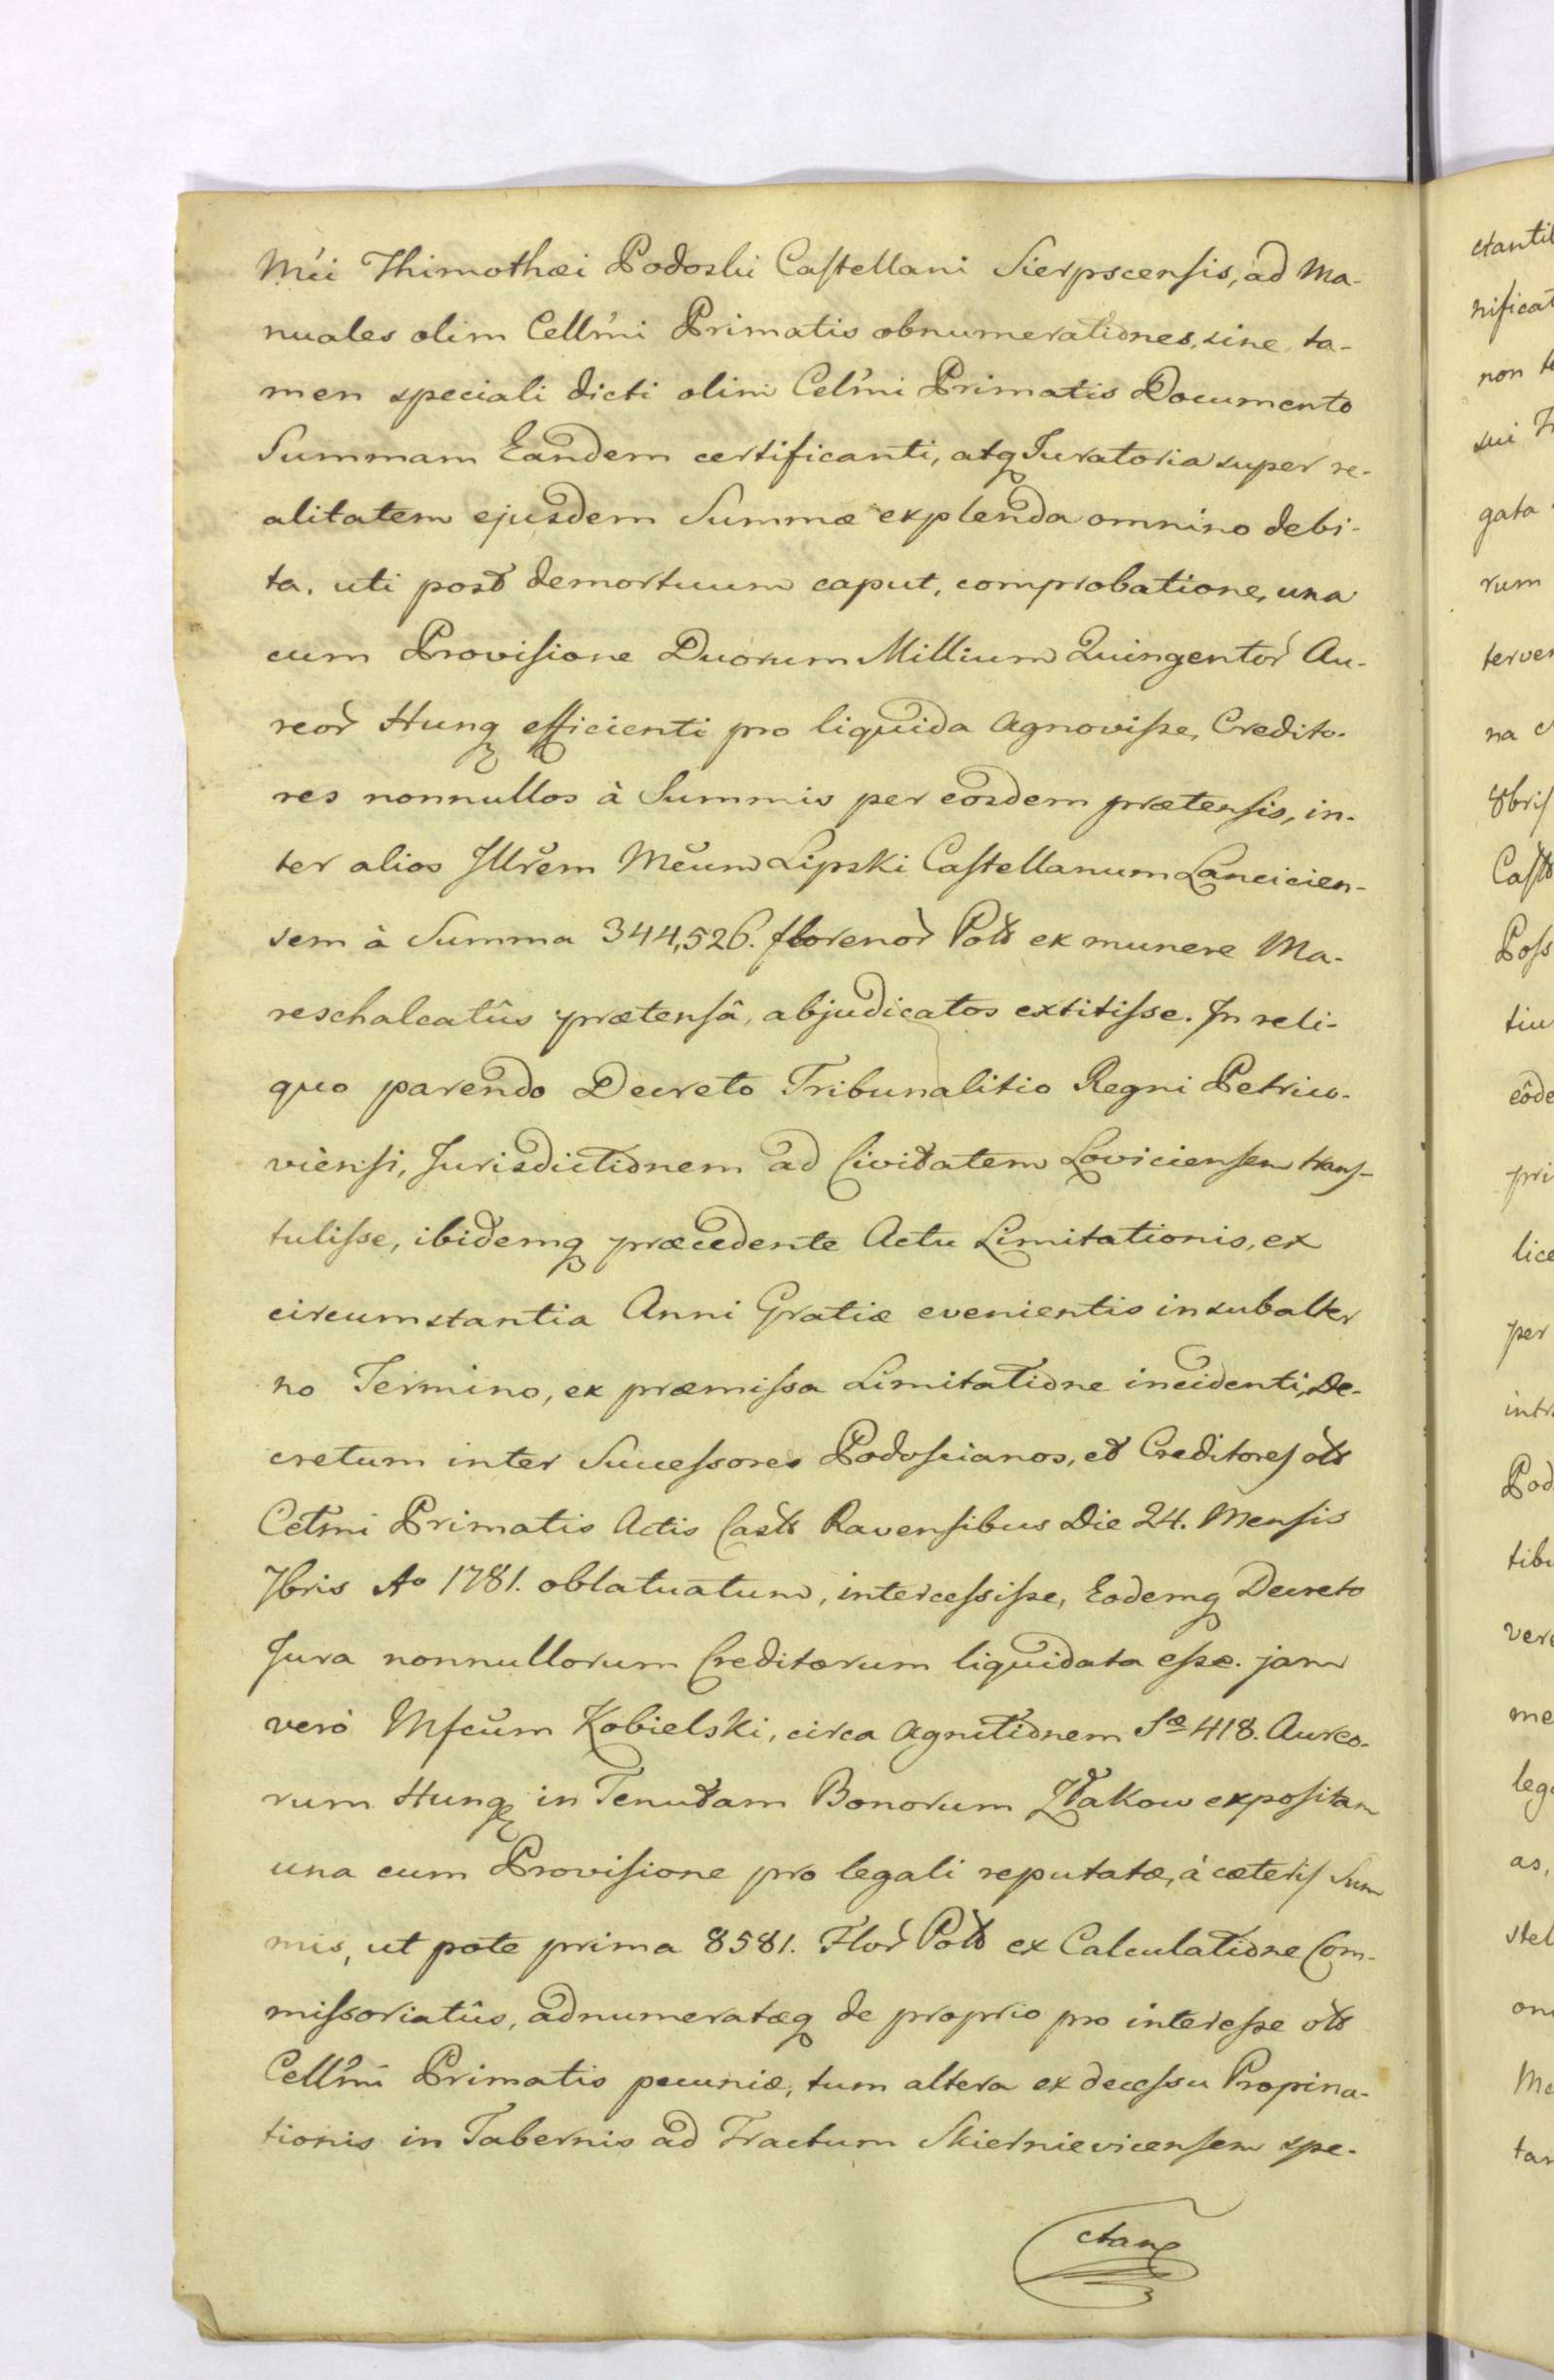 Mĕi Thimothæi Podoski Castellani Sierpscensis, ad Ma-
nuales olim Cellm̃i Primatis obnumerationes, sine ta-
men speciali dicti olim Celm̃i Primatis Documento
Summam Eandem certificanti, atq Juratoria super re-
alitatem ejusdem Summæ explenda omnino debi-
ta, uti post demortuum caput, comprobatione, una
cum Provisione Duorum Millium Quingentor̃ Au-
reor̃ Hung efficienti pro liquida agnovisse, Credito-
res nonnullos à Summis per eosdem prætensis, in-
ter alios Jllrĕm Mĕum Lipski Castellanum Lancicien-
sem à Summa 344,526. florenor̃ Polł ex munere Ma-
reschalcatûs prætensâ, abjudicatos extitisse. Jn reli-
quo parendo Decreto Tribunalitio Regni Petrico-
viensi, Jurisdictionem ad Civitatem Loviciensem trans-
tulisse, ibidemq præcedente Actu Limitationis, ex
circumstantia Anni Gratiæ evenientis in subalter
no Termino, ex præmissa Limitatione incidenti, De-
cretum inter Successores Podoscianos, et Creditores olł
Celm̃i Primatis Actis Castr Ravensibus Die 24. Mensis
7bris Aº 1781. oblatuatum, intercessisse, Eodemq Decreto
Jura nonnullorum Creditorum liquidata esse. jam
verò Mfcŭm Kobielski, circa agnitionem Sæ 418. Aureo-
rum Hung in Tenutam Bonorum Złakow expositam
una cum Provisione pro legali reputatæ, à cæteris Sum
mis, ut pote prima 8581. Flor̃ Polł ex Calculatione Com-
missoriatûs, adnumeratæq de proprio pro interesse olł
Cellm̃i Primatis pecuniæ, tum altera ex decessu Propina-
tionis in Tabernis ad Tractum Skiernievicensem spe-
ctan
ctantib
nificat
non
sui
gata
rum
terve
na
8bris
Castr
Poss
tiu
eôde
pri
lice
per
intr
Pod
tibu
vere
me
leg
as,
stel
on
Me
tan